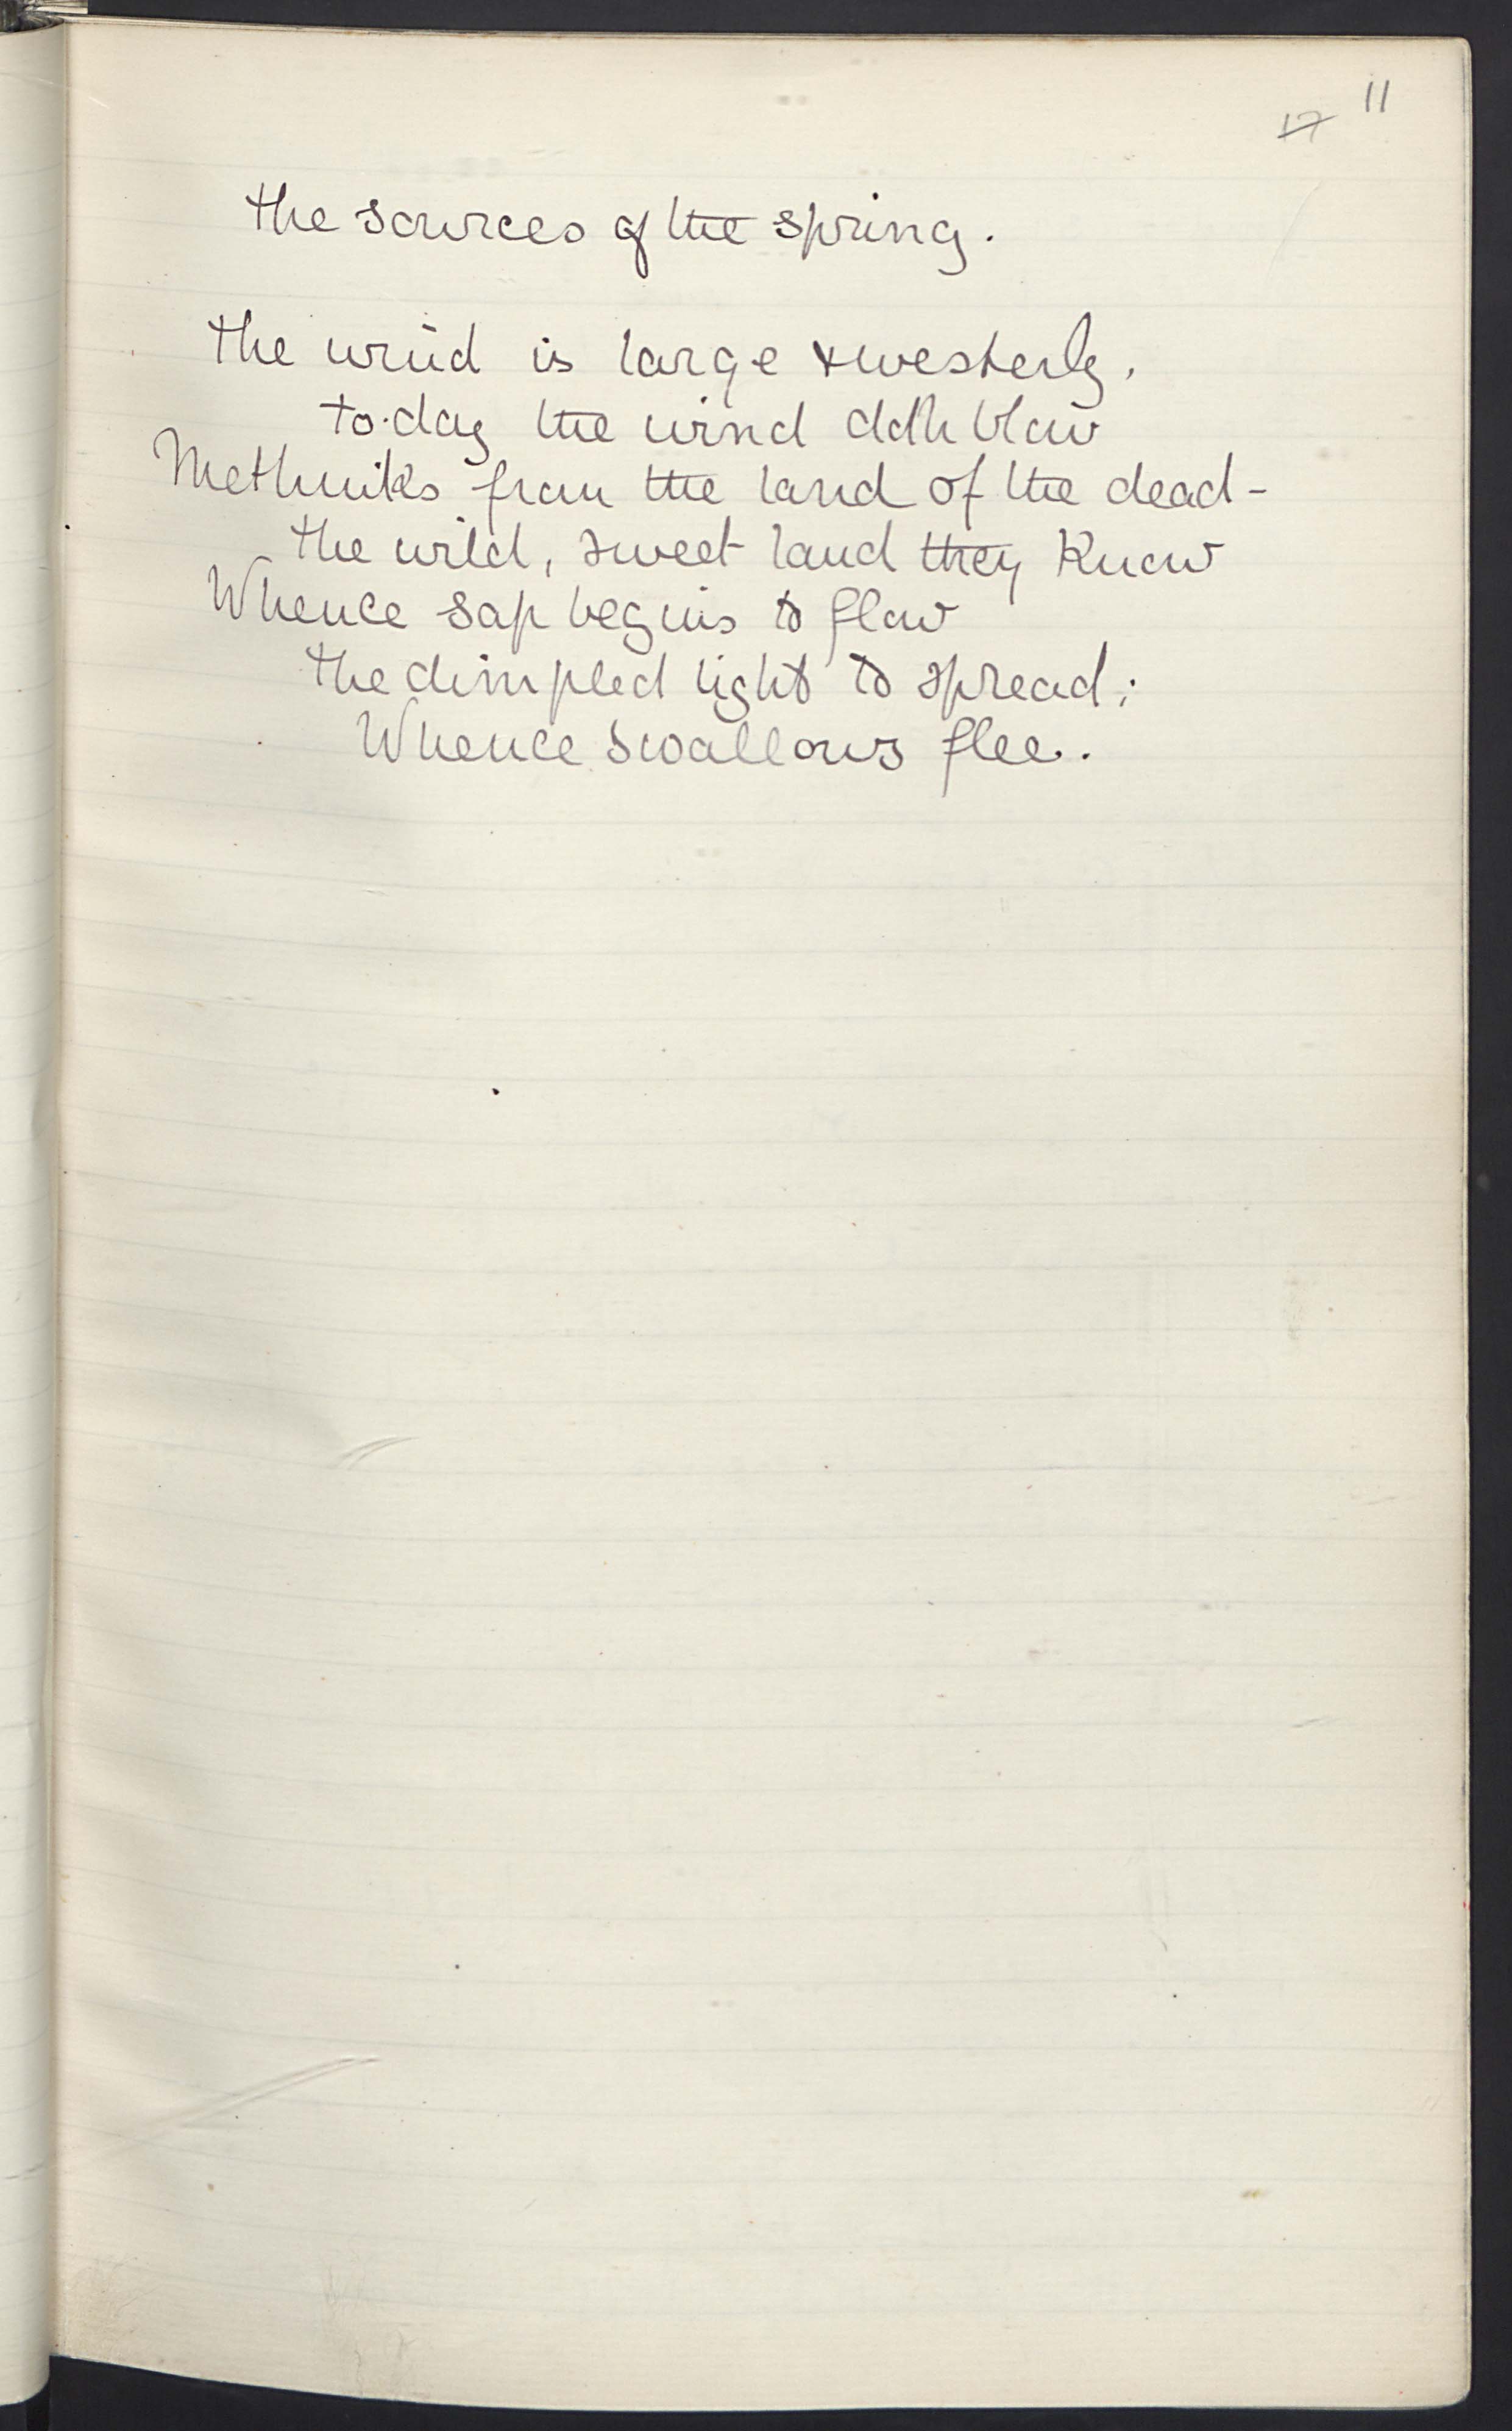 11
17
the sources of the spring.
the wind is large & westerly,
to-day the wind doth blow
Methinks from the land of the dead -
the wild, sweet land they know
Whence sap begins to flow
the dimpled light to spread;
Whence swallows flee.